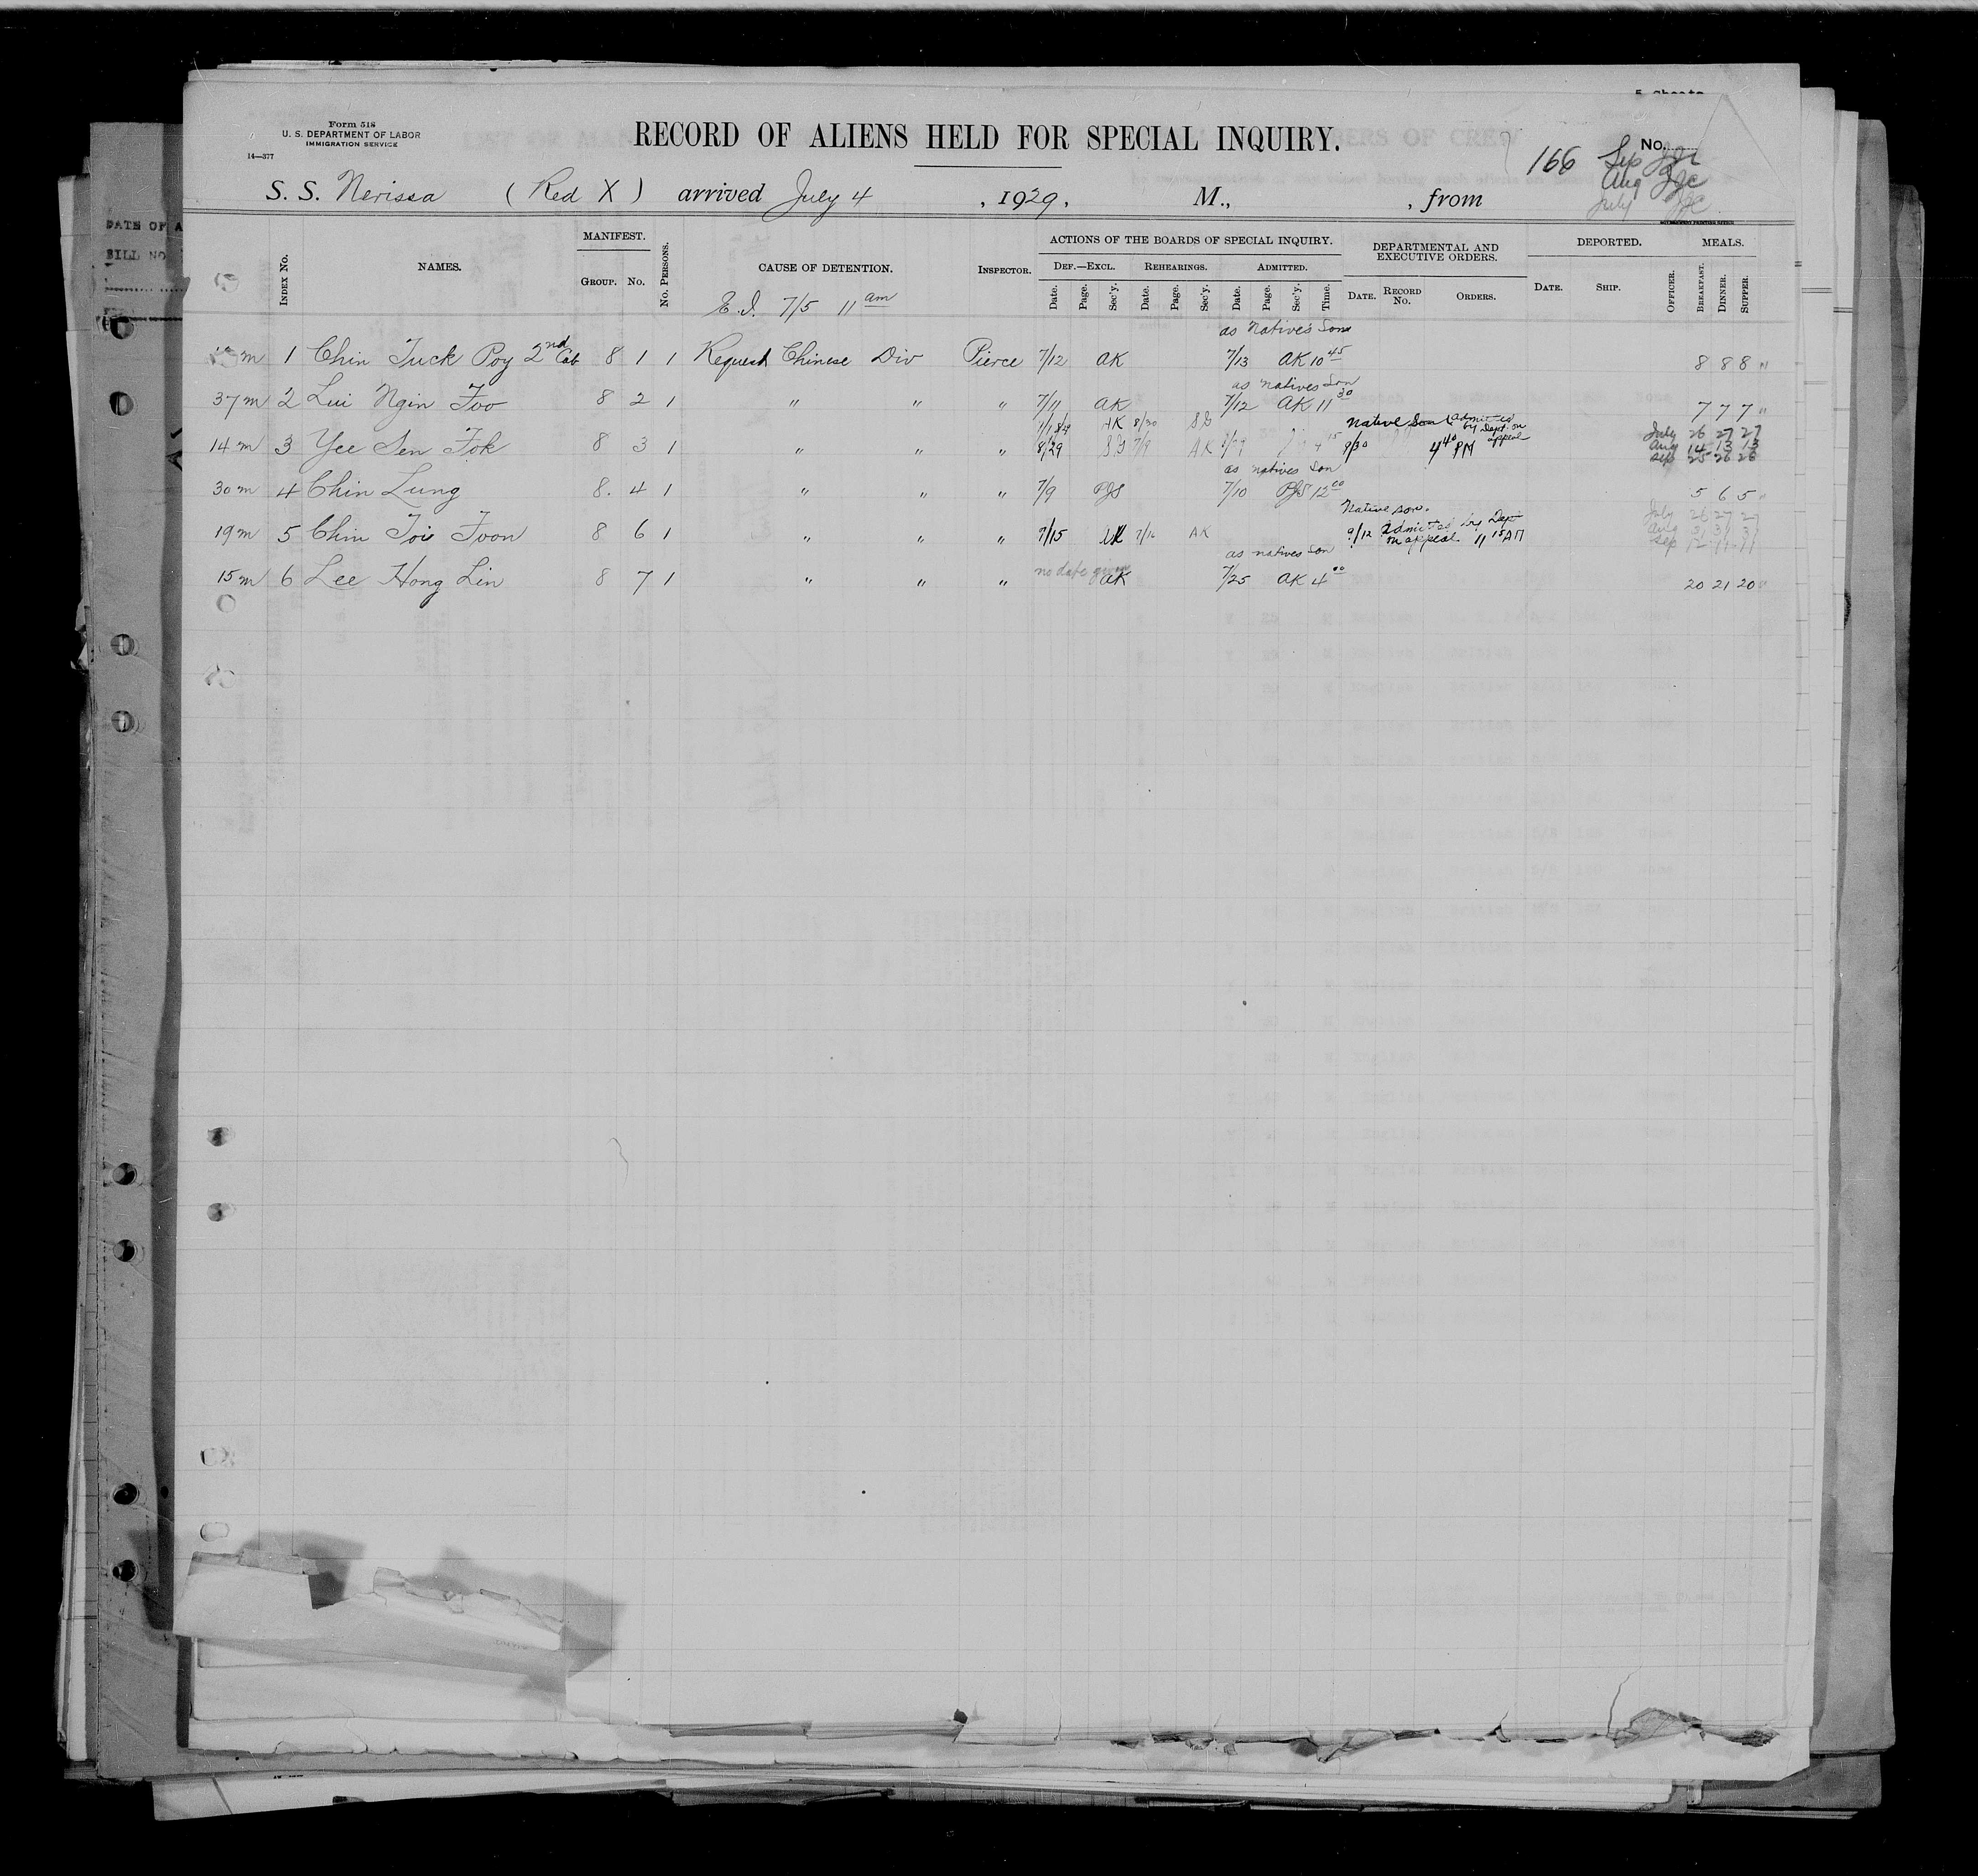 Form 518
U. S. DEPARTMENT OF LABOR
IMMIGRATION SERVICE
14—377
RECORD OF ALIENS HELD FOR SPECIAL INQUIRY.
No.
166
Aug
July
S. S. Nerissa (Red X) arrived July 4, 1929, M., from
DATE OF A
BILL NO
INDEX No. NAMES. MANIFEST. GROUP. No. No. PERSONS. CAUSE OF DETENTION. INSPECTOR. ACTIONS OF THE BOARDS OF SPECIAL INQUIRY. DEF.—EXCL. Date. Page. Sec'y. REHEARINGS. Date. Page. Sec'y. ADMITTED. Date. Page. Sec'y. Time. DEPARTMENTAL AND EXECUTIVE ORDERS. DATE. RECORD No. ORDERS. DEPORTED. DATE. SHIP. OFFICER. MEALS. BREAKFAST. DINNER. SUPPER.
7/5 11 am
as Natives Son
m 1 Chin Tuck Poy 2nd Cab 8 1 1 Request Chinese Div Pierce 7/12 AK 7/13 AK 10 45 8 8 8 "
as natives Son
37 m 2 Lui Ngin Foo 8 2 1 " " " 7/11 AK 7/12 AK 11 30 7 7 7 "
AK 8/30 SG native son admitted by Dept. on appeal July 26 27 27
14 m 3 Yee Sen Fok 8 3 1 " " " 8/29 SG AK 4 40 PM Aug 14 13 13
Sep 25 26 26
as natives Son
30 m 4 Chin Lung 8. 4 1 " " " 7/9 PJS 7/10 PJS 12 00 5 6 5 "
Native son. July 26 27 27
19 m 5 Chin Toie Foon 8 6 1 " " " 7/15 AK AK 9/12 admitted by Dept on appeal 11 15 AM Aug 31 31 31
Sep 12 11 11
as natives Son
15 m 6 Lee Hong Lin 8 7 1 " " " no date given AK 7/25 AK 4 00 20 21 20 "